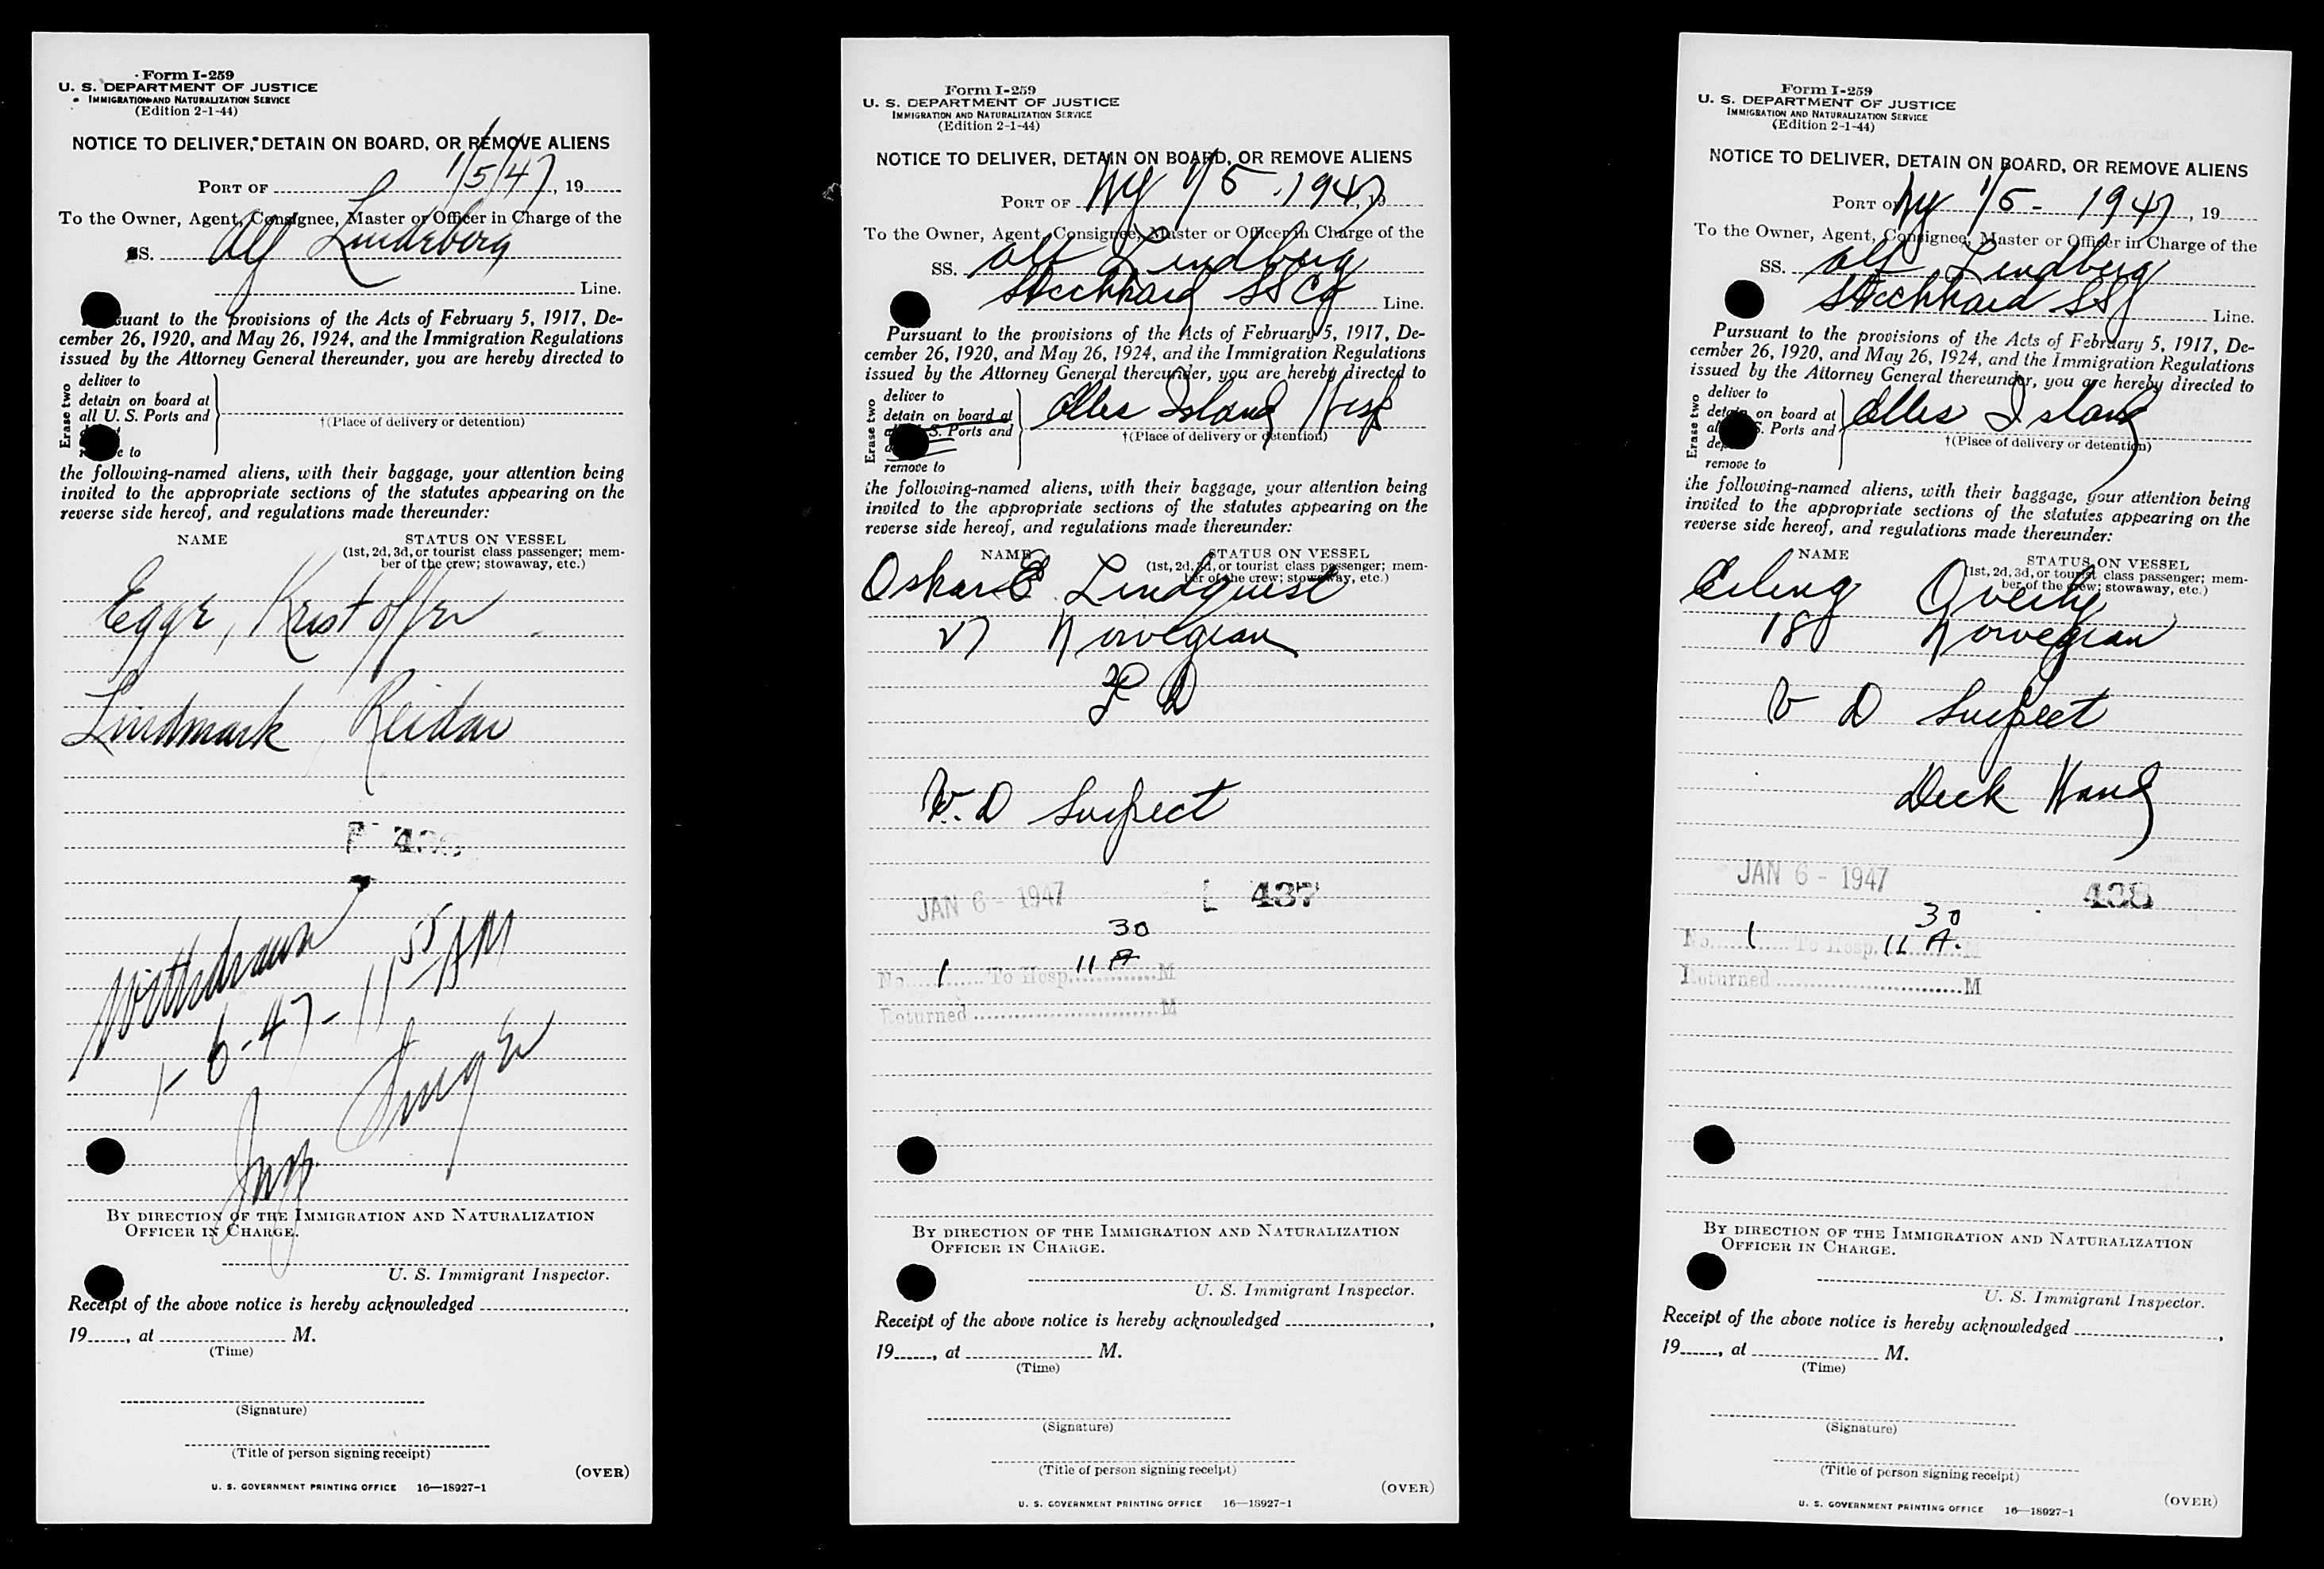 Form I-259
U. S. DEPARTMENT OF JUSTICE
IMMIGRATION AND NATURALIZATION SERVICE
(Edition 2-1-44)
NOTICE TO DELIVER, DETAIN ON BOARD, OR REMOVE ALIENS
PORT OF 1/5/47, 19
To the Owner, Agent, Consignee, Master or Officer in Charge of the
SS. Alf Lindeberg
Line.
suant to the provisions of the Acts of February 5, 1917, De-
cember 26, 1920, and May 26, 1924, and the Immigration Regulations
issued by the Attorney General thereunder, you are hereby directed to
Erase two
deliver to
detain on board at
all U. S. Ports and
e to
†(Place of delivery or detention)
the following-named aliens, with their baggage, your attention being
invited to the appropriate sections of the statutes appearing on the
reverse side hereof, and regulations made thereunder:
NAME STATUS ON VESSEL
(1st, 2d, 3d, or tourist class passenger; mem-
ber of the crew; stowaway, etc.)
Egge, Kristoffer
Lindmark, Reidar
Withdrawn
1-6-47-11 55 AM
BY DIRECTION OF THE IMMIGRATION AND NATURALIZATION
OFFICER IN CHARGE.
U. S. Immigrant Inspector.
Receipt of the above notice is hereby acknowledged
19, at M.
(Time)
(Signature)
(Title of person signing receipt)
(OVER)
U. S. GOVERNMENT PRINTING OFFICE 16—18927-1
Form I-259
U. S. DEPARTMENT OF JUSTICE
IMMIGRATION AND NATURALIZATION SERVICE
(Edition 2-1-44)
NOTICE TO DELIVER, DETAIN ON BOARD, OR REMOVE ALIENS
PORT OF NY 1/5 - 1947, 19
To the Owner, Agent, Consignee, Master or Officer in Charge of the
SS. Alf Lindberg
SS Co Line.
Pursuant to the provisions of the Acts of February 5, 1917, De-
cember 26, 1920, and May 26, 1924, and the Immigration Regulations
issued by the Attorney General thereunder, you are hereby directed to
Erase two
deliver to
detain on board at
S. Ports and
remove to
Ellis Island Hosp
†(Place of delivery or detention)
the following-named aliens, with their baggage, your attention being
invited to the appropriate sections of the statutes appearing on the
reverse side hereof, and regulations made thereunder:
NAME STATUS ON VESSEL
(1st, 2d, 3d, or tourist class passenger; mem-
ber of the crew; stowaway, etc.)
Oskar E. Lindquist
27 Norwegian
V. D Suspect
JAN 6 - 1947 437
30
No. 1 To Hosp. 11 A M
Returned M
BY DIRECTION OF THE IMMIGRATION AND NATURALIZATION
OFFICER IN CHARGE.
U. S. Immigrant Inspector.
Receipt of the above notice is hereby acknowledged ,
19, at M.
(Time)
(Signature)
(Title of person signing receipt)
(OVER)
U. S. GOVERNMENT PRINTING OFFICE 16—18927-1
Form I-259
U. S. DEPARTMENT OF JUSTICE
IMMIGRATION AND NATURALIZATION SERVICE
(Edition 2-1-44)
NOTICE TO DELIVER, DETAIN ON BOARD, OR REMOVE ALIENS
PORT OF NY 1/5 - 1947, 19
To the Owner, Agent, Consignee, Master or Officer in Charge of the
SS. Alf Lindberg
SS Line.
Pursuant to the provisions of the Acts of February 5, 1917, De-
cember 26, 1920, and May 26, 1924, and the Immigration Regulations
issued by the Attorney General thereunder, you are hereby directed to
Erase two
deliver to
detain on board at
S. Ports and
remove to
Ellis Island
†(Place of delivery or detention)
the following-named aliens, with their baggage, your attention being
invited to the appropriate sections of the statutes appearing on the
reverse side hereof, and regulations made thereunder:
NAME STATUS ON VESSEL
(1st, 2d, 3d, or tourist class passenger; mem-
ber of the crew; stowaway, etc.)
Erling Qverby
18 Norwegian
V D Suspect
Deck Hand
JAN 6 - 1947 438
30
No. 1 To Hosp. 11 A. M
Returned M
BY DIRECTION OF THE IMMIGRATION AND NATURALIZATION
OFFICER IN CHARGE.
U. S. Immigrant Inspector.
Receipt of the above notice is hereby acknowledged ,
19, at M.
(Time)
(Signature)
(Title of person signing receipt)
(OVER)
U. S. GOVERNMENT PRINTING OFFICE 16—18927-1